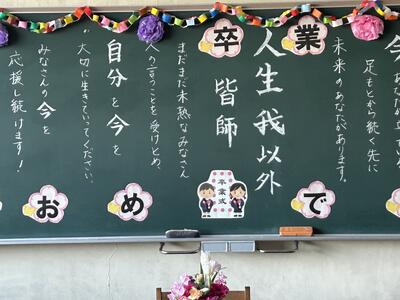 今
あなたが立
足もとから続く先に
未来のあなたがあります。
人生我以外
皆師
まだまだ未熟なみなさん
人の言うことを受けとめ、
自分を今を
大切に生きていってください。
みなさんの今を
応援し続けます！
卒業
おめで
卒業式